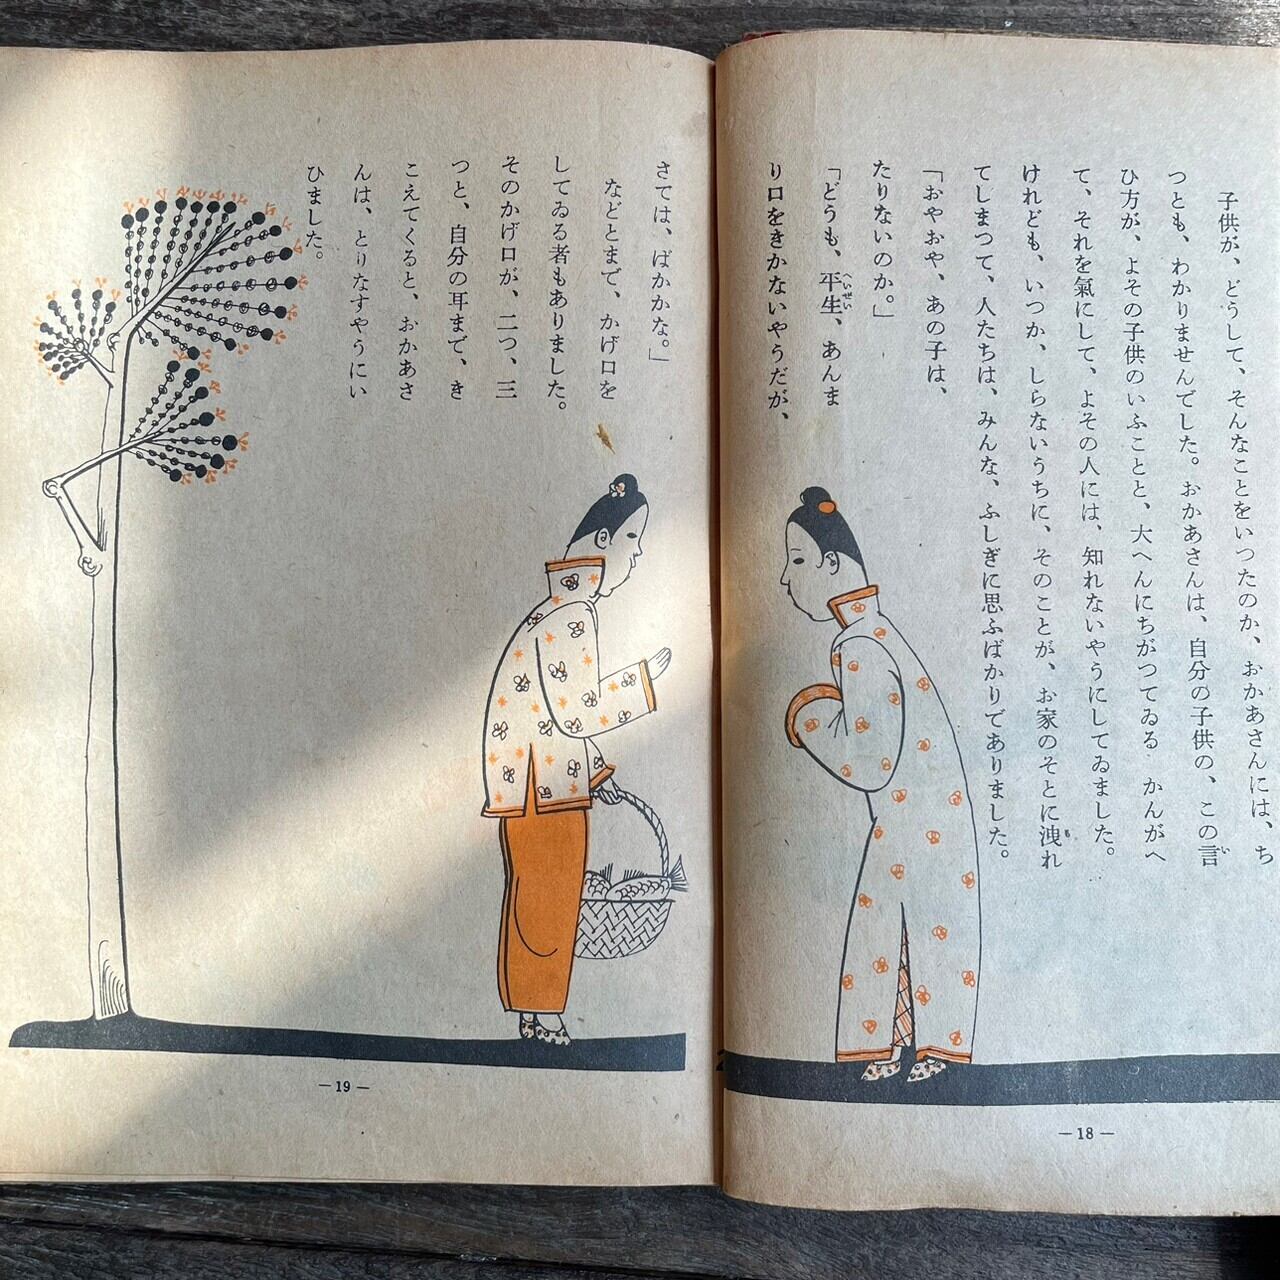 子供が、どうして、そんなことをいつたのか、おかあさんには、ち
つとも、わかりませんでした。おかあさんは、自分の子供の、この言
ひ方が、よその子供のいふことと、大へんにちがつてゐる かんがへ
て、それを氣にして、よその人には、知れないやうにしてゐました。
けれども、いつか、しらないうちに、そのことが、お家のそとに洩れ
てしまつて、人たちは、みんな、ふしぎに思ふばかりでありました。
「おやおや、あの子は、
たりないのか。」
「どうも、平生、あんま
り口をきかないやうだが、
さては、ばかかな。」
などとまで、かげ口を
してゐる者もありました。
そのかげ口が、二つ、三
つと、自分の耳まで、き
こえてくると、おかあさ
んは、とりなすやうにい
ひました。
い
も
へいぜい
— 18 —
— 19 —